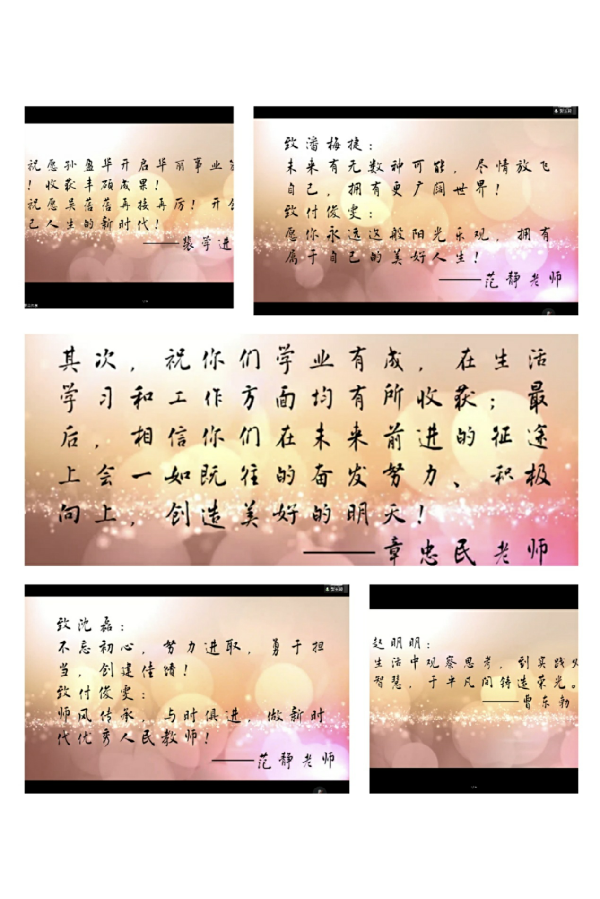 祝愿孙盈华开启华丽事业
！收获丰硕成果！
祝愿吴蓓蓓再接再厉！开
己人生的新时代！
——裴学进
致潘梅捷：
未来有无数种可能，尽情放飞
自己，拥有更广阔世界！
致付俊雯：
愿你永远这般阳光乐观，拥有
属于自己的美好人生！
——范静老师
其次，祝你们学业有成，在生活
学习和工作方面均有所收获；最
后，相信你们在未来前进的征途
上会一如既往的奋发努力、积极
向上，创造美好的明天！
——章忠民老师
致沈磊：
不忘初心，努力进取，勇于担
当，创建佳绩！
致付俊雯：
师风传承，与时俱进，做新时
代优秀人民教师！
——范静老师
赵明明：
生活中观察思考，到实践
智慧，于平凡间铸造荣光。
——曹东勃